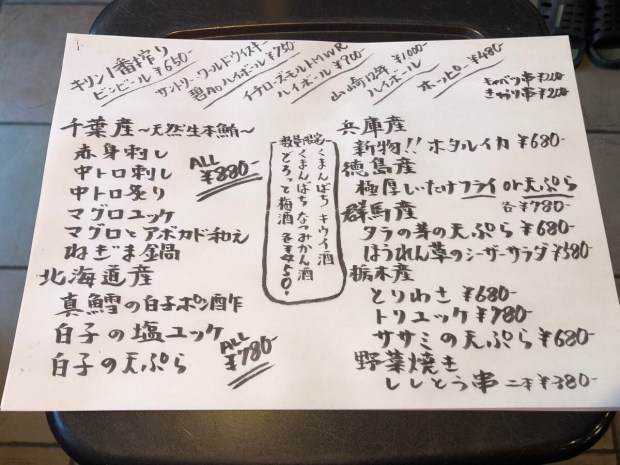 キリン1番搾り
ビンビール ¥650-
サントリーワールドウィスキー
碧Aoハイボール ¥750
イチローズモルトMWR
ハイボール ¥900
山崎12年 ¥1,000-
ハイボール
ホッピー ¥480
キャベツ串 ¥200
きゅうり串 ¥200
千葉産〜天然生本鮪〜
赤身刺し
中トロ刺し
中トロ炙り
マグロユッケ
マグロとアボカド和え
ねぎま鍋
ALL
¥880-
北海道産
真鱈の白子ポン酢
白子の塩ユッケ
白子の天ぷら
ALL
¥780-
数量限定
くまんばち キウイ酒
くまんばち なつみかん酒
どろっと梅酒 各¥450.
兵庫産
新物!! ホタルイカ ¥680-
徳島産
極厚しいたけフライ or 天ぷら
各¥780-
群馬産
タラの芽の天ぷら ¥680-
ほうれん草のシーザーサラダ ¥580
栃木産
とりわさ ¥680-
トリユッケ ¥780-
ササミの天ぷら ¥680-
野菜焼き
ししとう串 二本 ¥380-